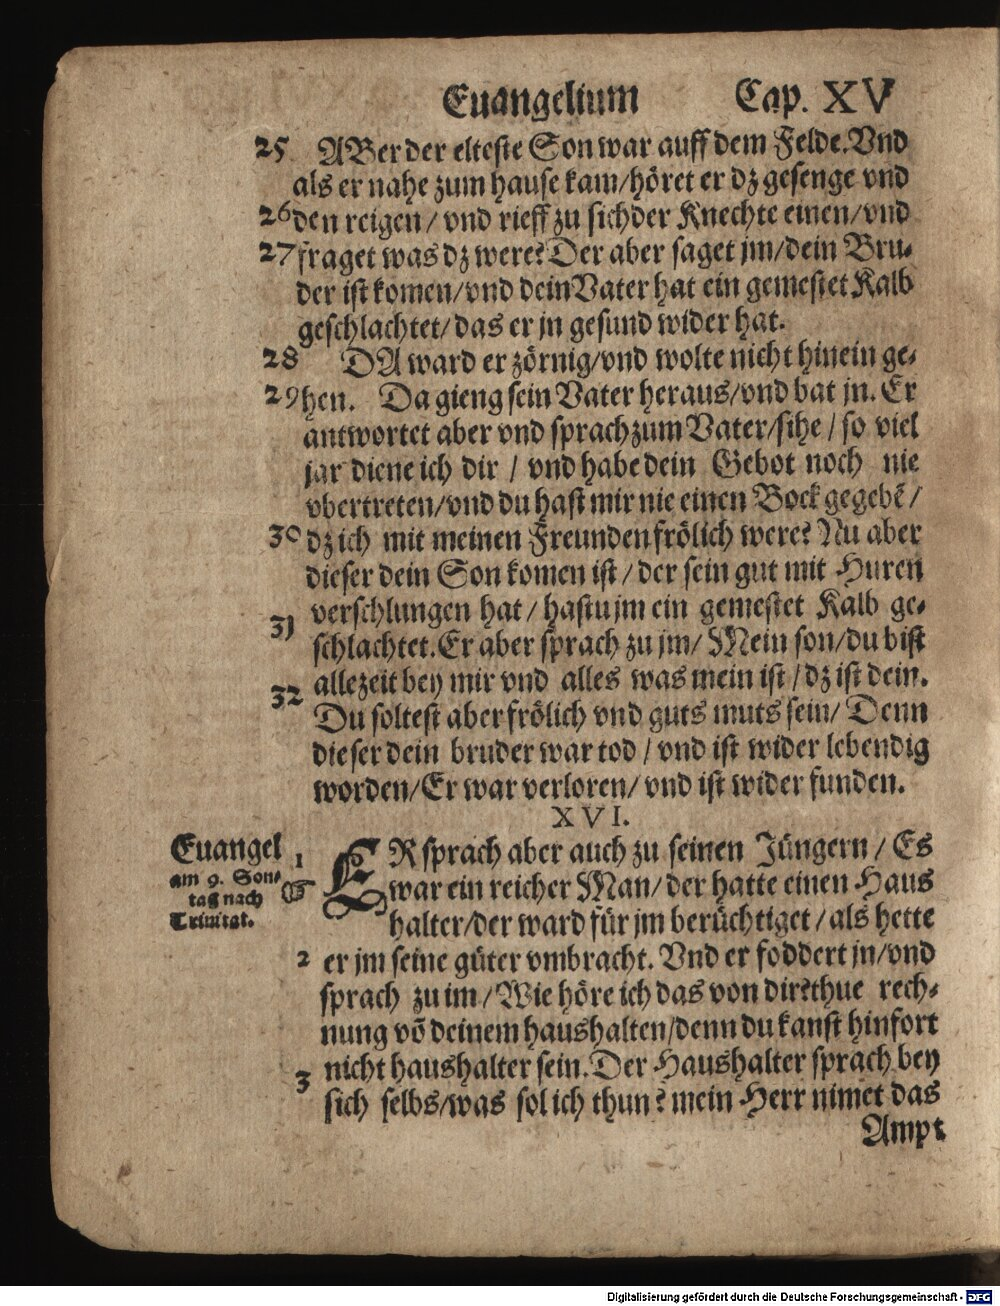 Euangelium Cap. XV
25 ABer der elteste Son war auff dem Felde. Vnd
als er nahe zum hause kam/höret er dz gesenge vnd
26 den reigen/ vnd rieff zu sich der Knechte einen/vnd
27 fraget was dz were? Der aber saget jm/dein Bru-
der ist komen/vnd dein Vater hat ein gemestet Kalb
geschlachtet/das er jn gesund wider hat.
28 DA ward er zörnig/vnd wolte nicht hinein ge-
29 hen. Da gieng sein Vater heraus/vnd bat jn. Er
antwortet aber vnd sprach zum Vater/sihe/ so viel
jar diene ich dir / vnd habe dein Gebot noch nie
vbertreten/vnd du hast mir nie einen Bock gegebē/
30 dz ich mit meinen Freunden frölich were? Nu aber
dieser dein Son komen ist/ der sein gut mit Huren
31 verschlungen hat/ hastu jm ein gemestet Kalb ge-
schlachtet. Er aber sprach zu jm/ Mein son/du bist
allezeit bey mir vnd alles was mein ist/dz ist dein.
32 Du soltest aber frölich vnd guts muts sein/ Denn
dieser dein bruder war tod / vnd ist wider lebendig
worden/Er war verloren/ vnd ist wider funden.
XVI.
Euangel
am 9. Son-
tag nach
Trinitat.
1 ☞ ER sprach aber auch zu seinen Jüngern / Es
war ein reicher Man/ der hatte einen Haus
halter/der ward für jm berüchtiget/ als hette
2 er jm seine güter vmbracht. Vnd er foddert jn/vnd
sprach zu im /Wie höre ich das von dir? thue rech-
nung vō deinem haushalten/denn du kanst hinfort
3 nicht haushalter sein. Der Haushalter sprach bey
sich selbs/was sol ich thun? mein Herr nimet das
Ampt
Digitalisierung gefördert durch die Deutsche Forschungsgemeinschaft - DFG